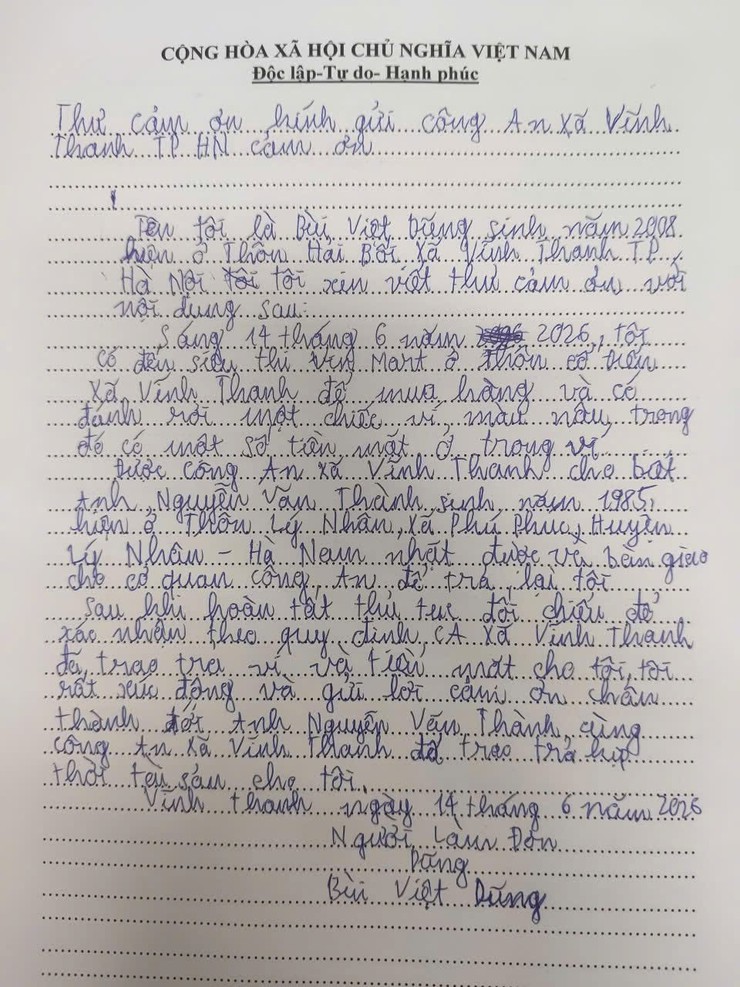 CỘNG HÒA XÃ HỘI CHỦ NGHĨA VIỆT NAM
Độc lập-Tự do- Hạnh phúc
Thư cảm ơn kính gửi công An xã Vĩnh
Thanh TP HN cảm ơn
Tên tôi là Bùi Việt Dũng sinh năm 2008
hiện ở Thôn Hải Bối xã Vĩnh Thanh TP
Hà Nội tôi xin viết thư cảm ơn với
nội dung sau:
Sáng 14 tháng 6 năm 2026, tôi
có đến siêu thị Vin Mart ở thôn cổ Điển
xã Vĩnh Thanh để mua hàng và có
đánh rơi một chiếc ví màu nâu, trong
đó có một số tiền mặt ở trong ví
Được công An xã Vĩnh Thanh cho biết
Anh Nguyễn Văn Thành sinh năm 1985,
hiện ở Thôn Lý Nhân, xã Phú Phúc, Huyện
Lý Nhân - Hà Nam nhặt được và bàn giao
cho cơ quan công An để trả lại tôi
sau khi hoàn tất thủ tục đối chiếu để
xác nhận theo quy định, CA xã Vĩnh Thanh
đã trao trả ví và tiền mặt cho tôi, tôi
rất xúc động và gửi lời cảm ơn chân
thành tới Anh Nguyễn Văn Thành cùng
công An xã Vĩnh Thanh đã trao trả kịp
thời tài sản cho tôi.
Vĩnh thanh ngày 14 tháng 6 năm 2026
Người Làm Đơn
Dũng
Bùi Việt Dũng